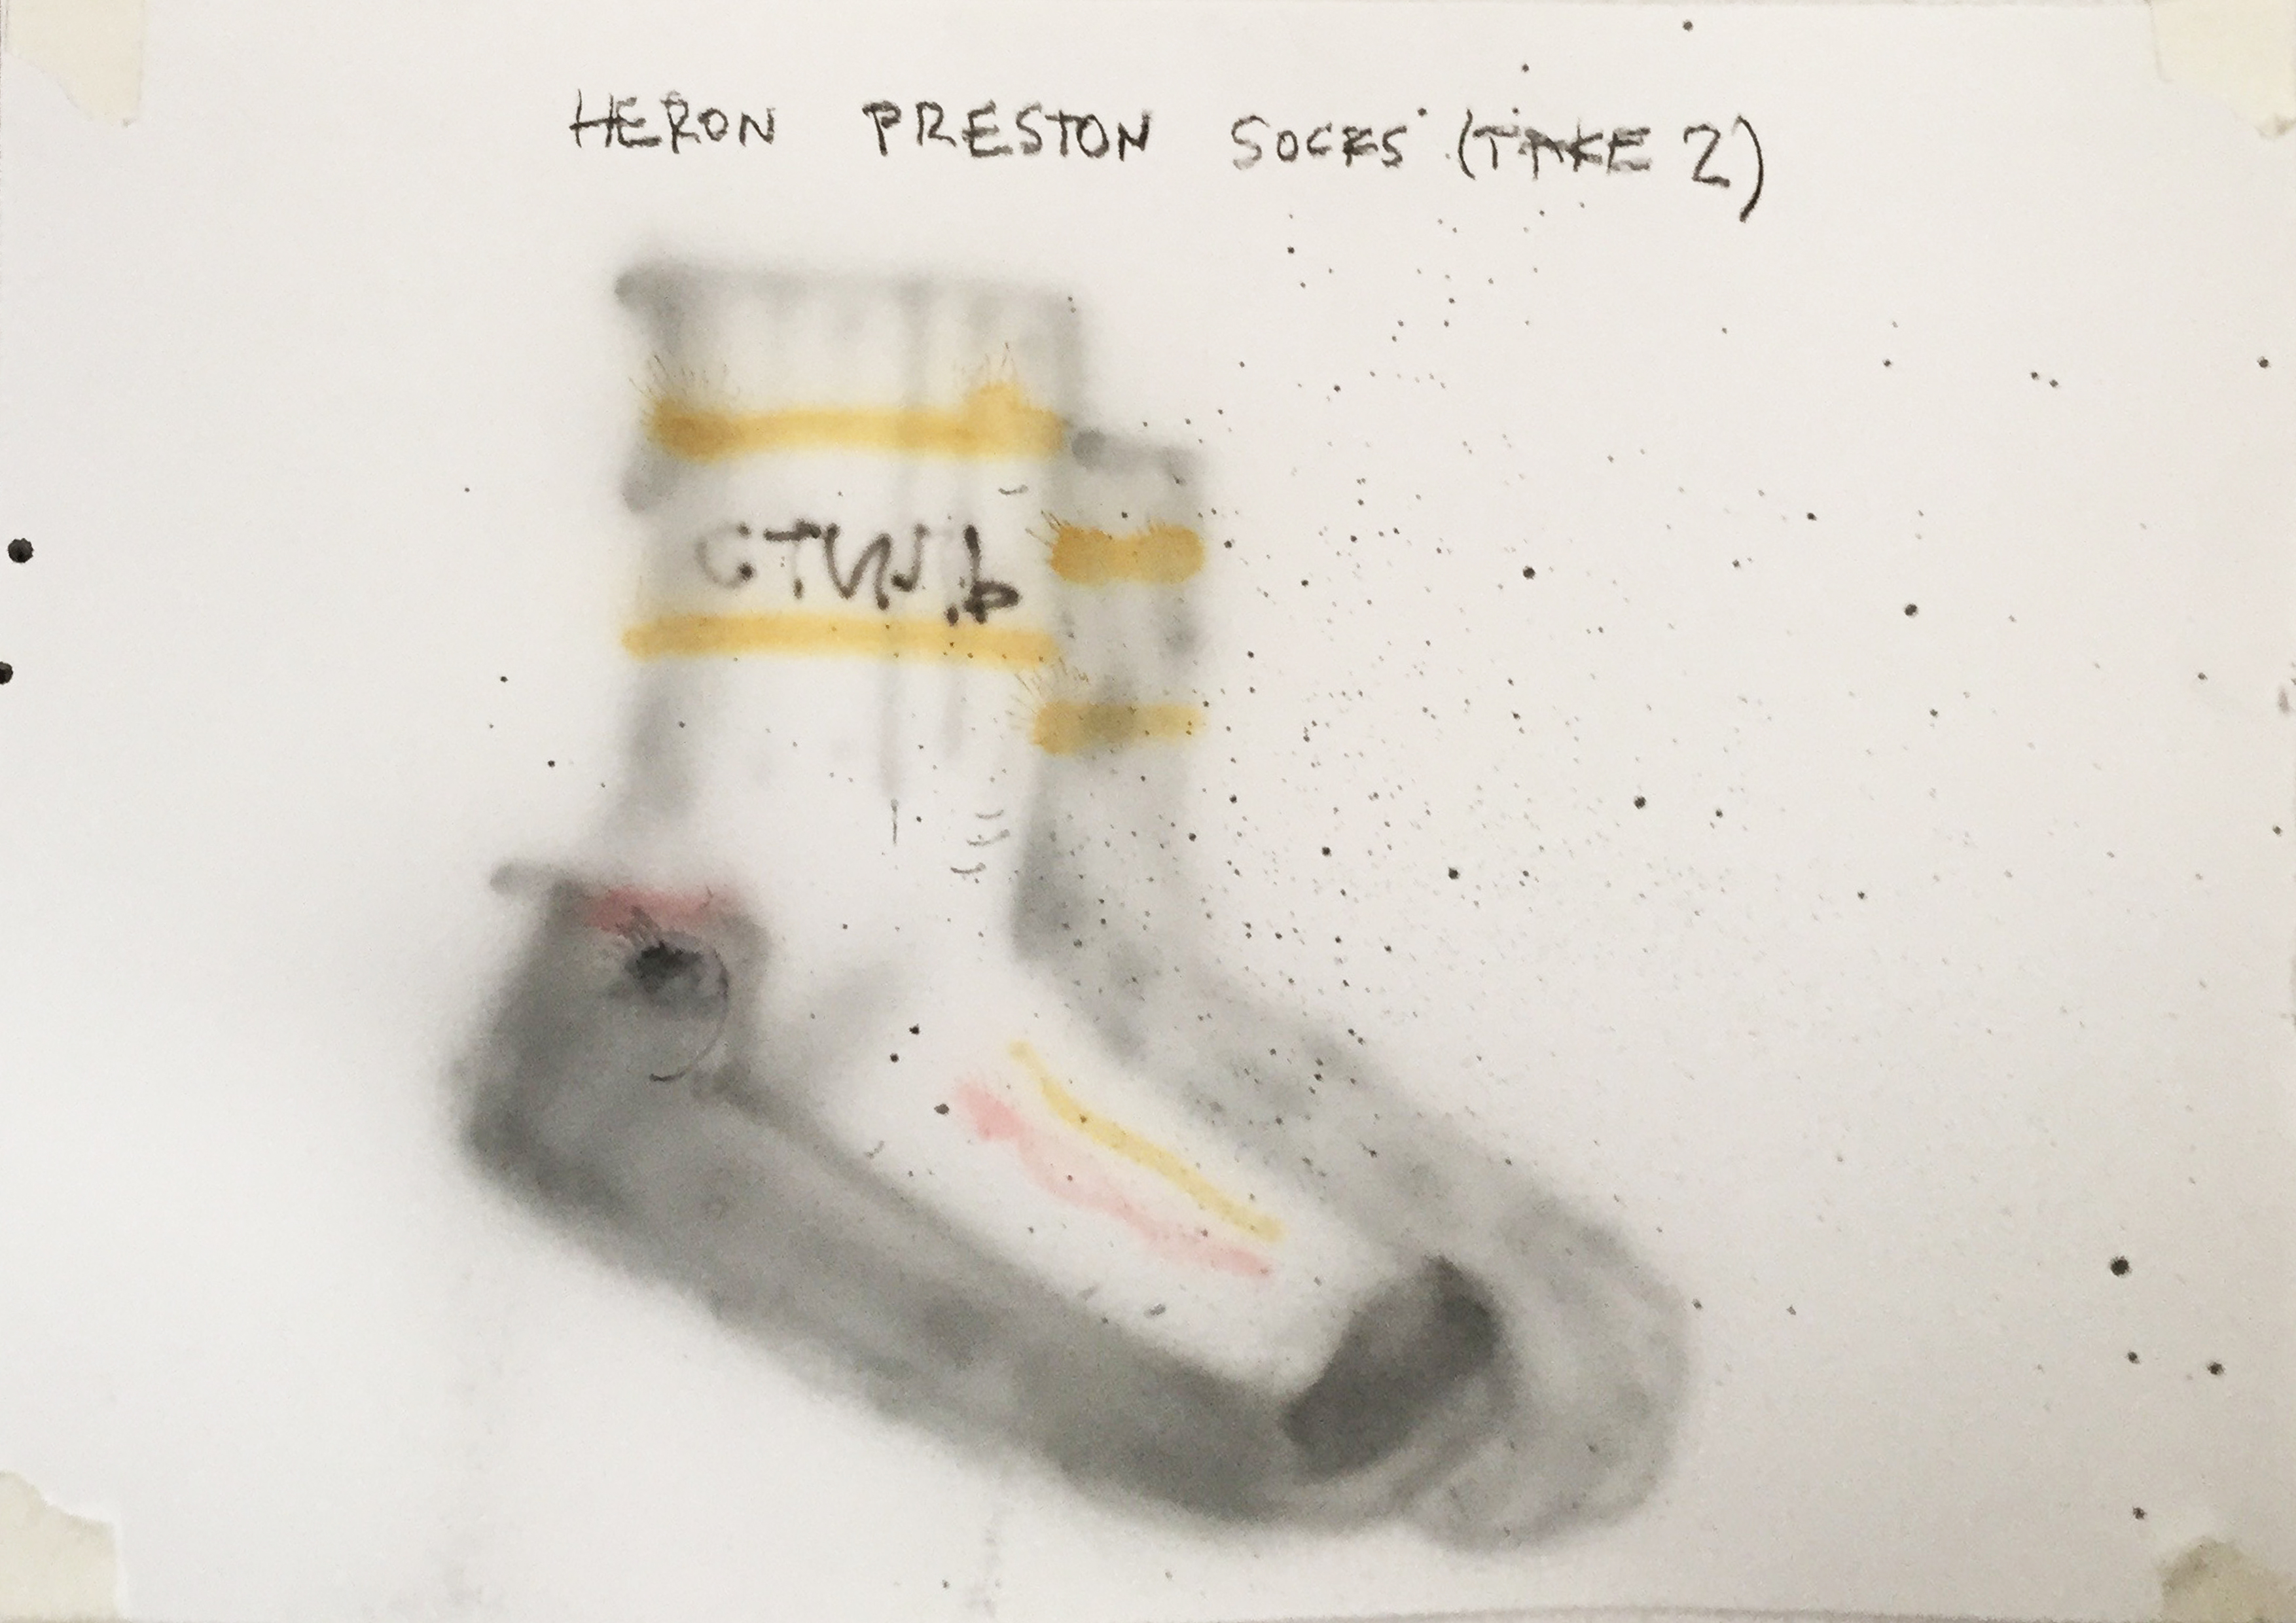 HERON PRESTON SOCKS (TAKE 2)